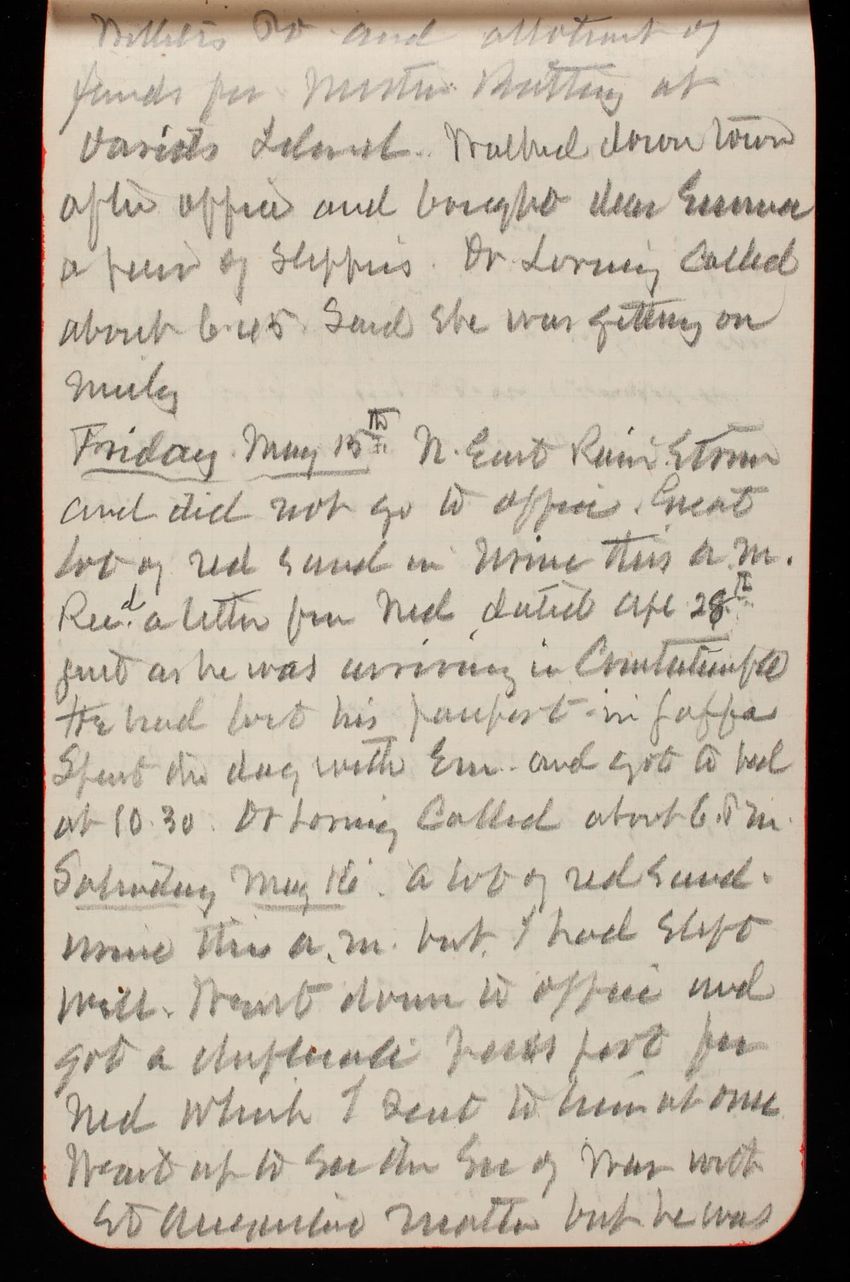 Willets Pt and allotment of
funds for Mortar Battery at
Davids Island. Walked down town
after office and bought dear Emma
a pair of slippers. Dr Loring called
about 6.45. Said she was getting on
nicely
Friday May 15th N. East Rain Storm
and did not go to office. Great
lot of red sand in urine this a.m.
Recd. a letter from Ned dated Apl 28th
just as he was arriving in
He had lost his passport in Jaffa
Spent the day with Em. and got to bed
at 10.30. Dr Loring called about 6. P.m.
Saturday May 16. A lot of red sand.
urine this a.m. but I had slept
well. Went down to office and
got a duplicate passport for
Ned which I sent to him at once
Went up to see the Sec of War with
St Augustine matter but he was